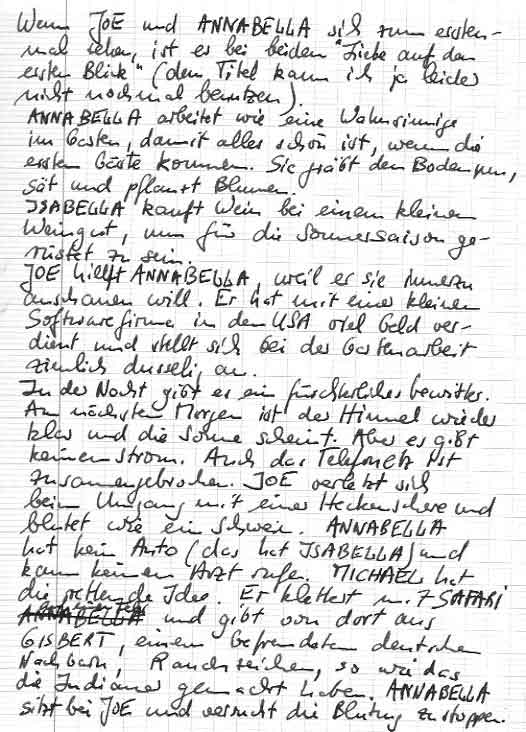 Wenn JOE und ANNABELLA sich zum ersten-
mal sehen, ist es bei beiden "Liebe auf den
ersten Blick" (den Titel kann ich ja leider
nicht nochmal benutzen).
ANNABELLA arbeitet wie eine Wahnsinnige
im Garten, damit alles schön ist, wenn die
ersten Gäste kommen. Sie gräbt den Boden um,
sät und pflanzt Blumen.
ISABELLA kauft Wein bei einem kleinen
Weingut, um für die Sommersaison ge-
rüstet zu sein.
JOE hilft ANNABELLA, weil er sie immerzu
anschauen will. Er hat mit einer kleinen
Softwarefirma in den USA viel Geld ver-
dient und stellt sich bei der Gartenarbeit
ziemlich dusselig an.
In der Nacht gibt es ein fürchterliches Gewitter.
Am nächsten Morgen ist der Himmel wieder
klar und die Sonne scheint. Aber es gibt
keinen Strom. Auch das Telefonnetz ist
zusammengebrochen. JOE verletzt sich
beim Umgang mit einer Heckenschere und
blutet wie ein Schwein. ANNABELLA
hat kein Auto (das hat ISABELLA) und
kann keinen Arzt rufen. MICHAEL hat
die rettende Idee. Er klettert mit SAFARI
und gibt von dort aus
GISBERT, einem befreundeten deutschen
Nachbarn, Rauchzeichen, so wie das
die Indianer gemacht haben. ANNABELLA
sitzt bei JOE und versucht die Blutung zu stoppen.